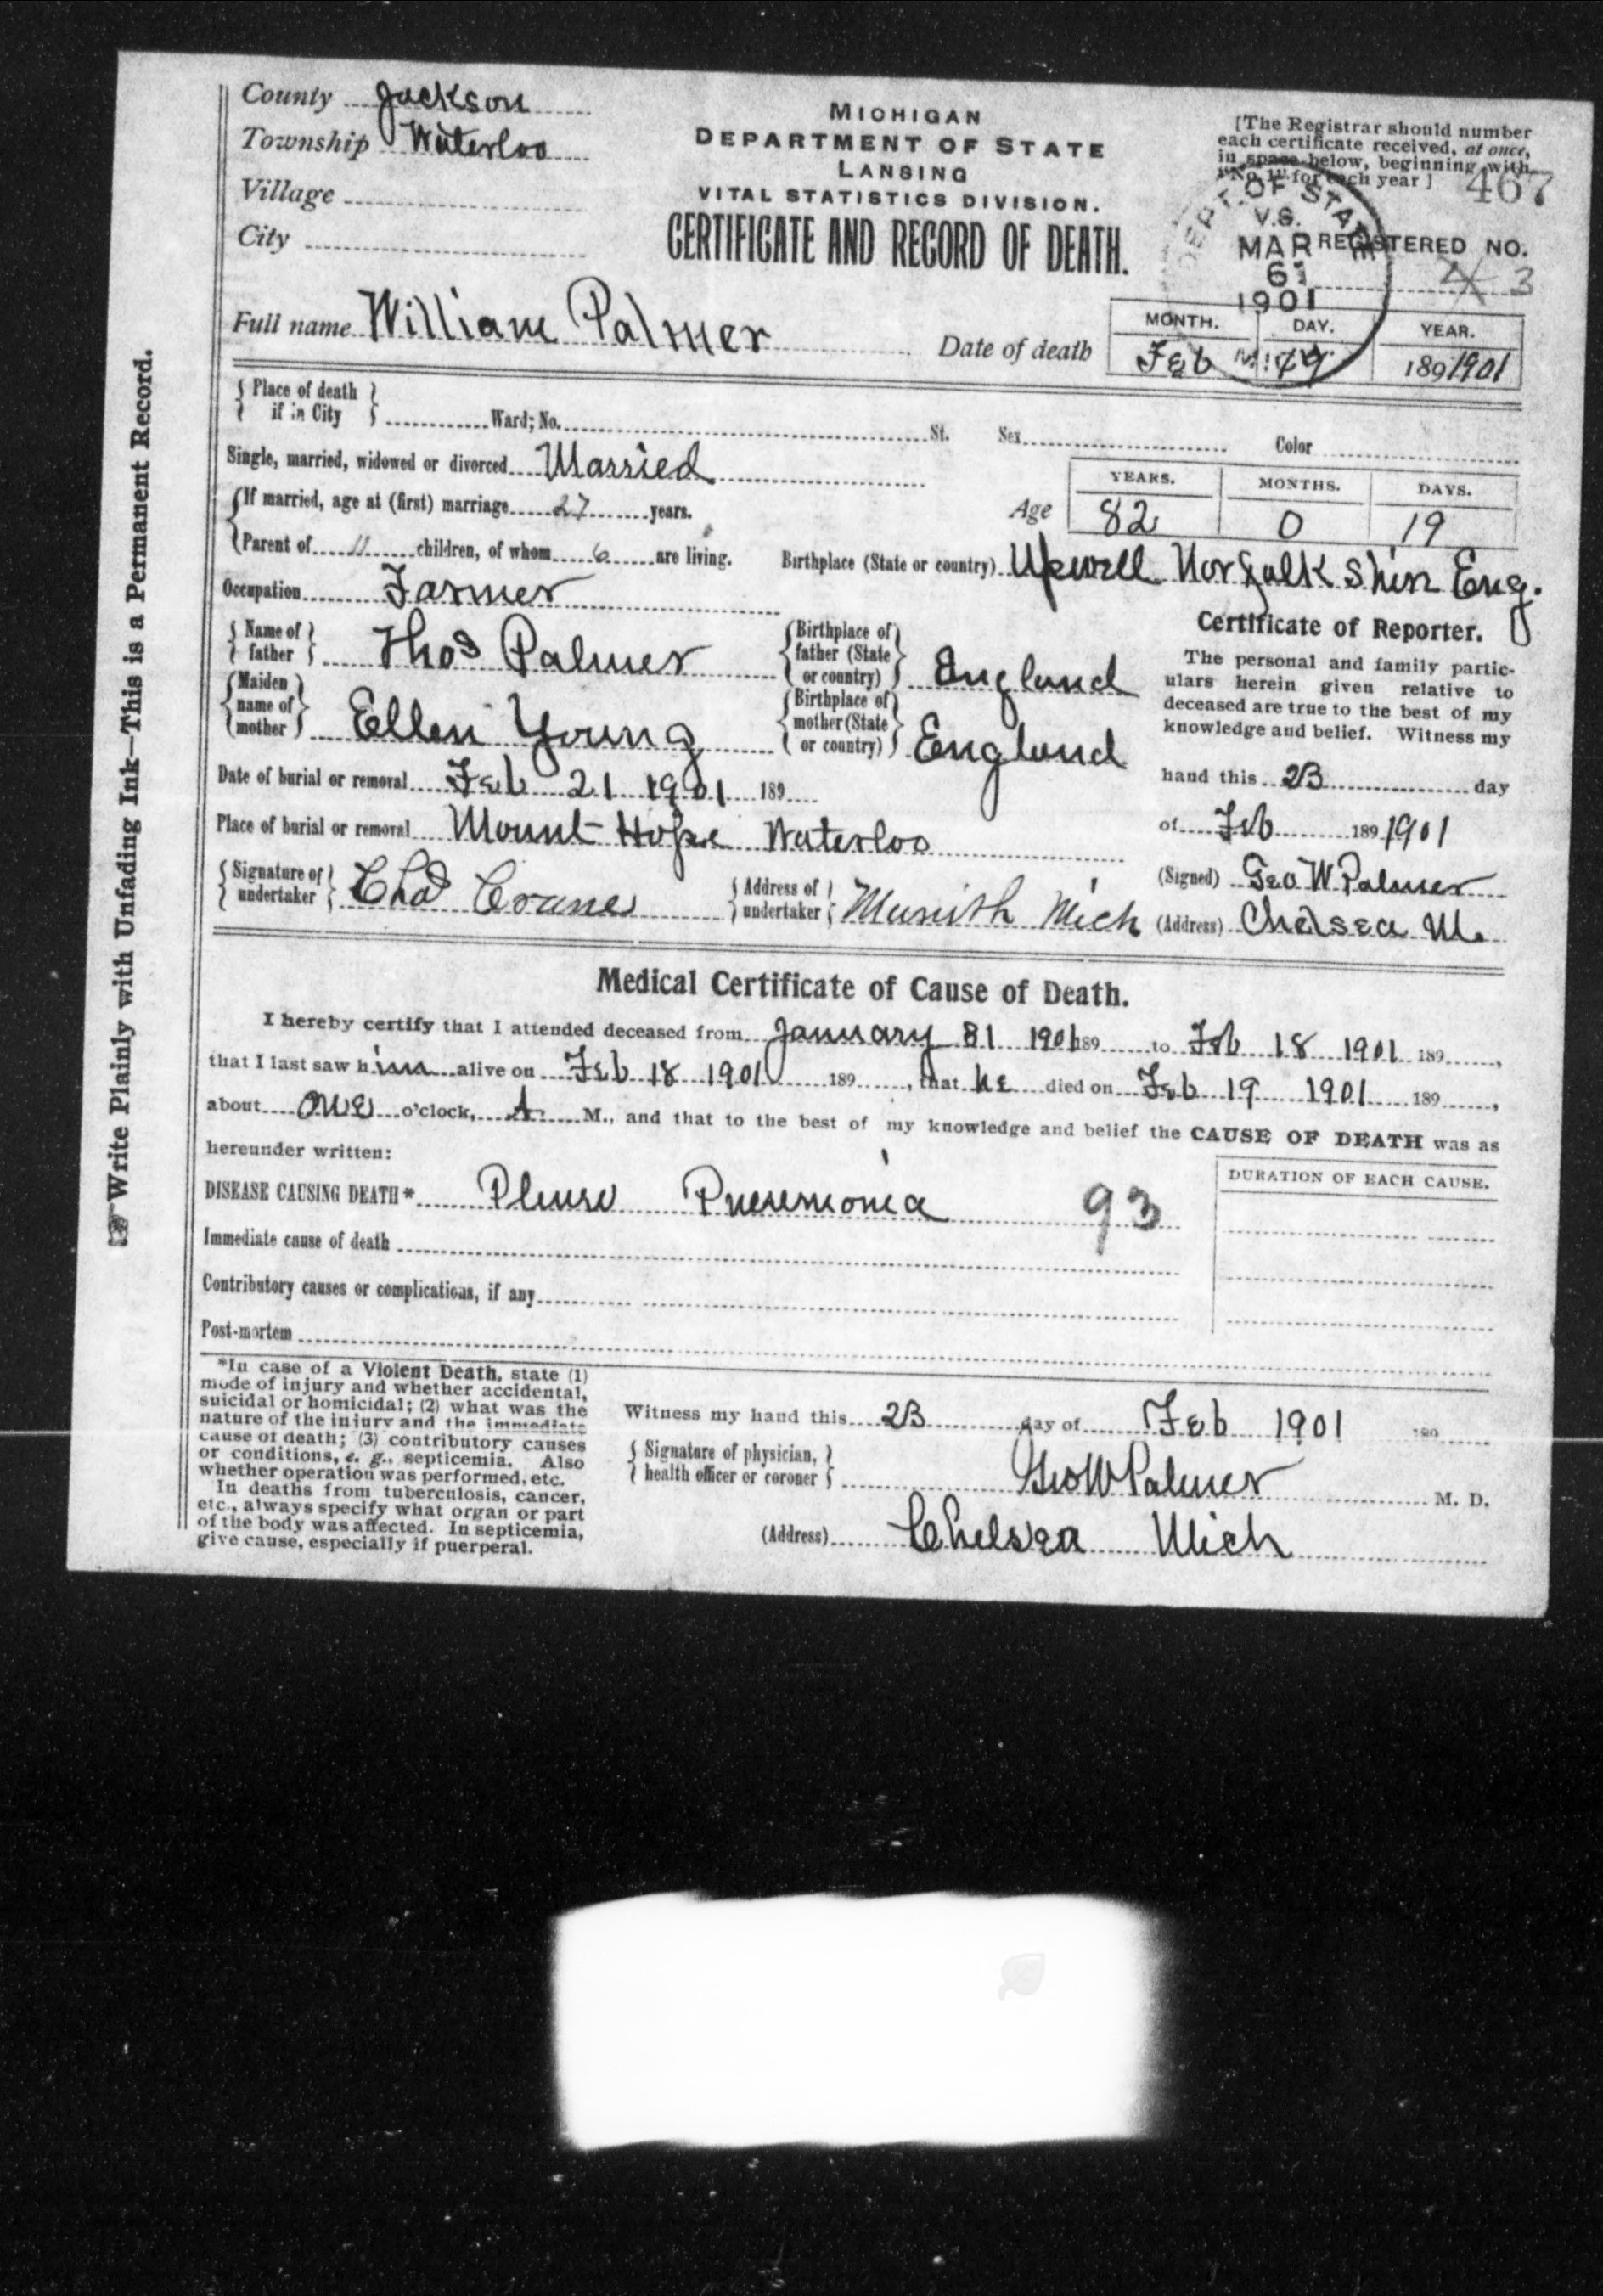 County Jackson
Township Waterloo
Village
City
MICHIGAN
DEPARTMENT OF STATE
LANSING
VITAL STATISTICS DIVISION.
CERTIFICATE AND RECORD OF DEATH.
[The Registrar should number
each certificate received, at once,
in space below, beginning with
"No. 1" for each year ]
467
DEPT. OF STATE
V.S.
MAR
6
1901
REGISTERED NO.
3
Full name William Palmer
Date of death
MONTH. DAY. YEAR.
Feb 19 1891901
Place of death if in City Ward; No. St. Sex Color
Single, married, widowed or divorced Married
If married, age at (first) marriage 27 years.
Age
YEARS. MONTHS. DAYS.
82 0 19
Parent of 11 children, of whom 6 are living.
Birthplace (State or country) Upwell Norfolk Shir Eng.
Occupation Farmer
Name of father Thos Palmer
Birthplace of father (State or country) England
Maiden name of mother Ellen Young
Birthplace of mother (State or country) England
Date of burial or removal Feb 21 1901 189
Place of burial or removal Mount Hope Waterloo
Signature of undertaker Chas Crane
Address of undertaker Munith Mich
Certificate of Reporter.
The personal and family partic-
ulars herein given relative to
deceased are true to the best of my
knowledge and belief. Witness my
hand this 23 day
of Feb 189 1901
(Signed) Geo W Palmer
(Address) Chelsea M.
Medical Certificate of Cause of Death.
I hereby certify that I attended deceased from January 31 1901 189 to Feb 18 1901 189 ,
that I last saw him alive on Feb 18 1901 189 , that he died on Feb 19 1901 189 ,
about one o'clock, A M., and that to the best of my knowledge and belief the CAUSE OF DEATH was as
hereunder written:
DURATION OF EACH CAUSE.
DISEASE CAUSING DEATH* Pleuro Pneumonia 93
Immediate cause of death
Contributory causes or complications, if any
Post-mortem
*In case of a Violent Death, state (1)
mode of injury and whether accidental,
suicidal or homicidal; (2) what was the
nature of the injury and the immediate
cause of death; (3) contributory causes
or conditions, e. g., septicemia. Also
whether operation was performed, etc.
In deaths from tuberculosis, cancer,
etc., always specify what organ or part
of the body was affected. In septicemia,
give cause, especially if puerperal.
Witness my hand this 23 day of Feb 1901 189
Signature of physician, health officer or coroner Geo W Palmer M. D.
(Address) Chelsea Mich
Write Plainly with Unfading Ink—This is a Permanent Record.